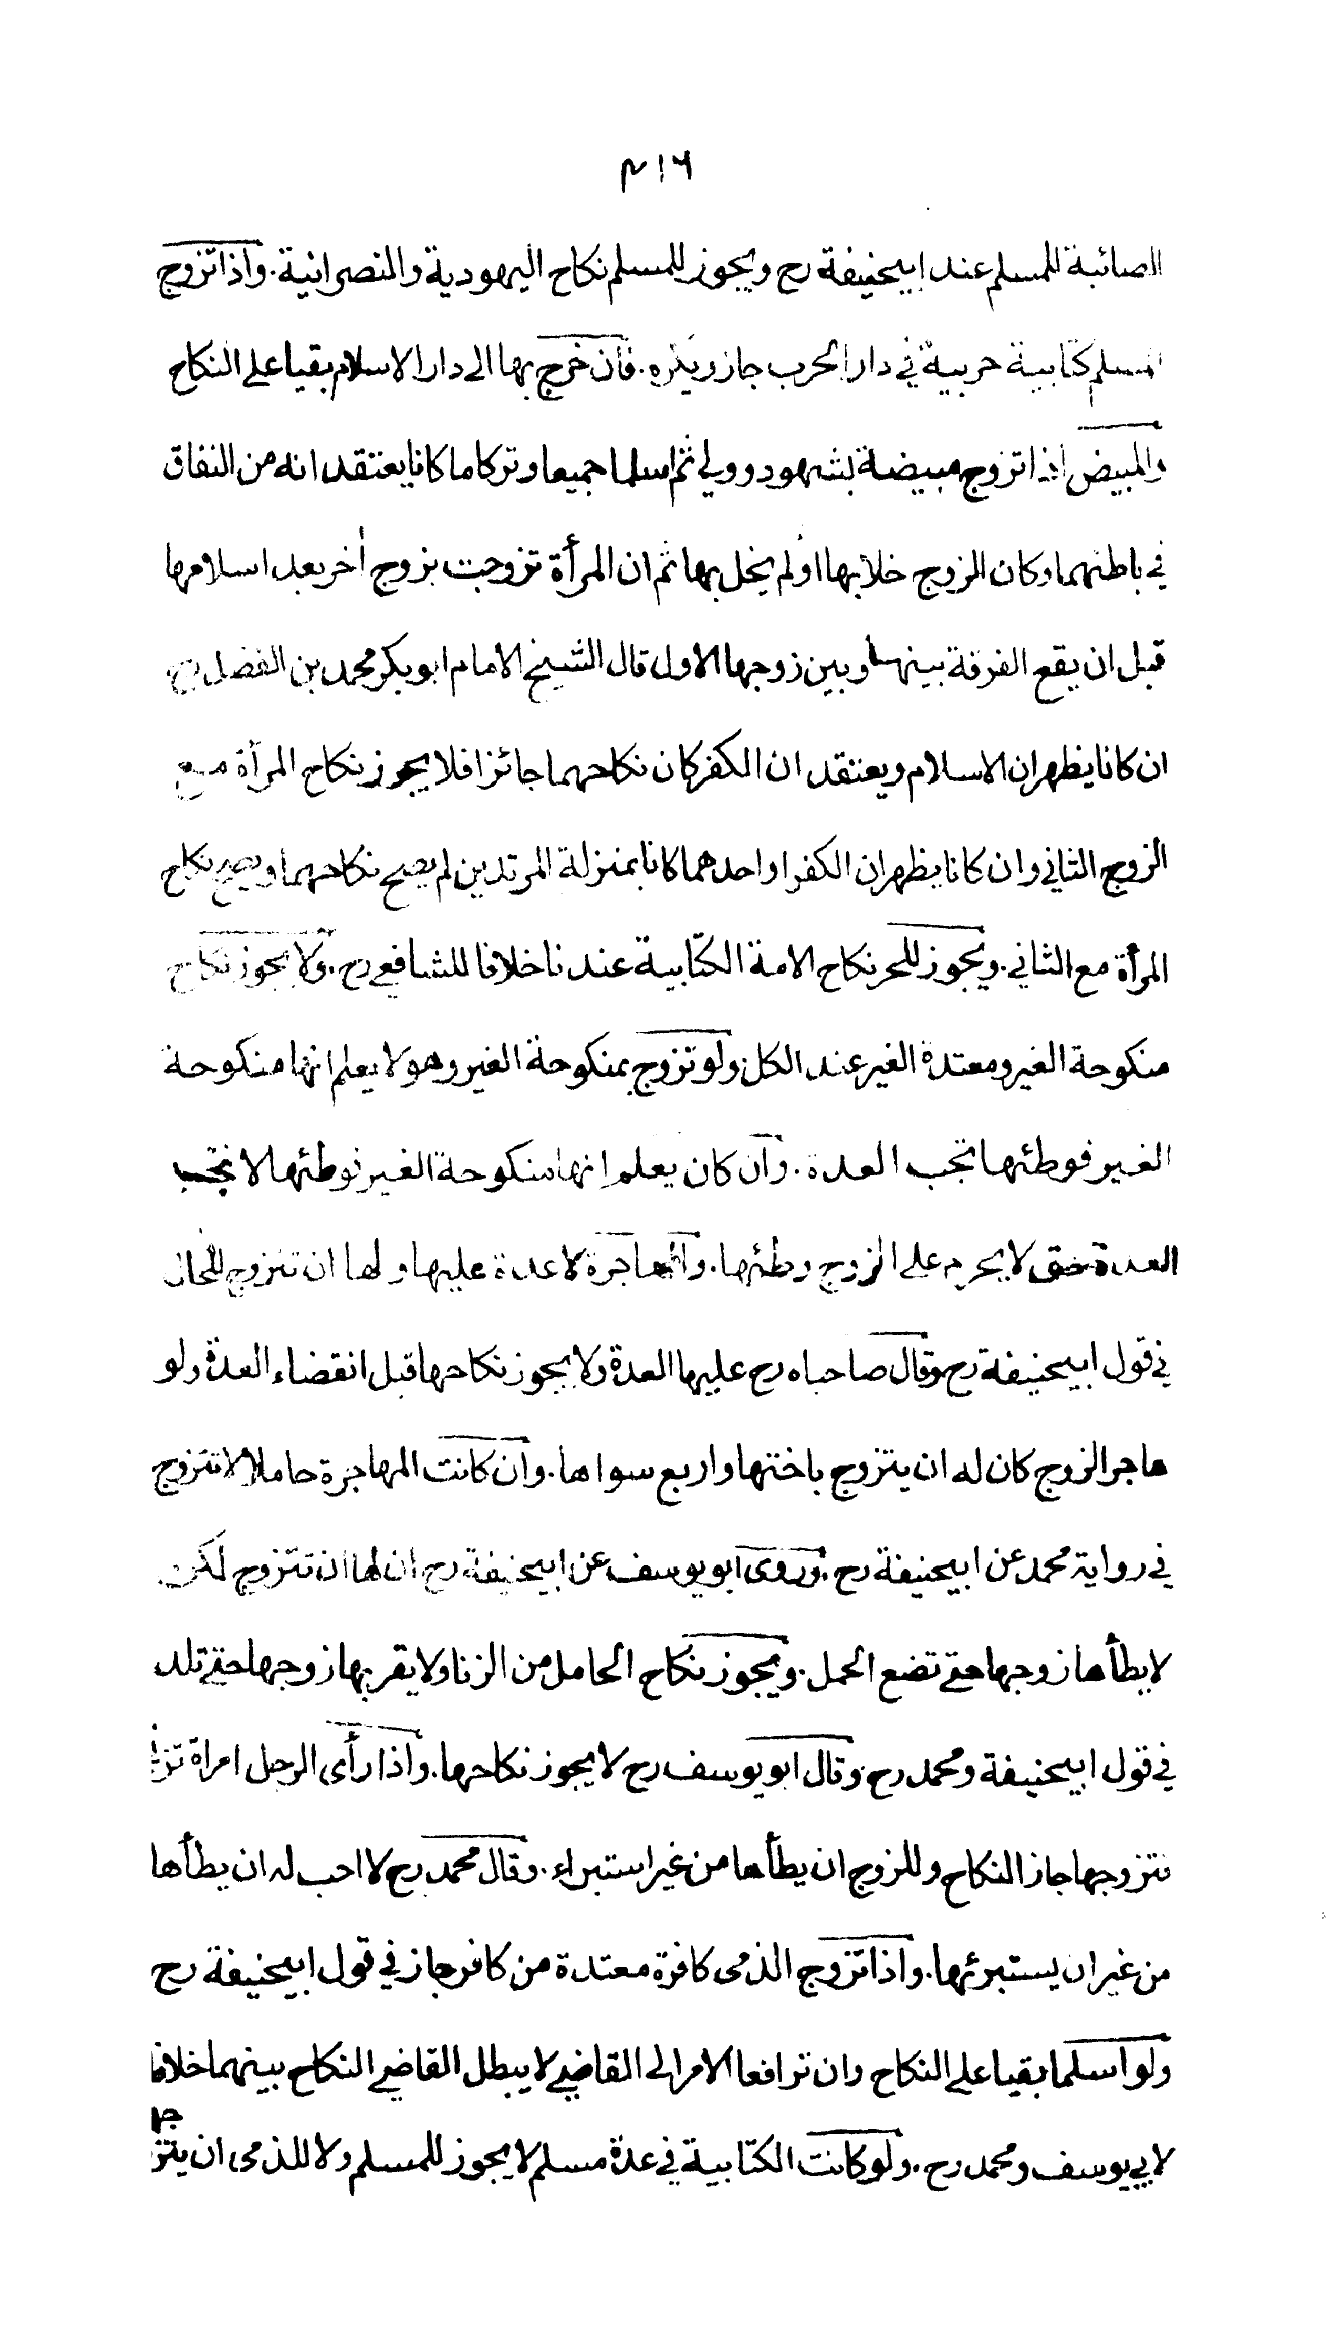 ٤١٦
الصائبة للمسلم عند ابيحنيفة رح ويجوز للمسلم نكاح اليهودية والنصرانية. واذا تزوج
المسلم كتابية حربية في دار الحرب جاز ويكره. فان خرج بها الى دار الاسلام بقيا على النكاح
والمبيض اذا تزوج مبيضة بشهود وولي ثم اسلما جميعا وتركا ما كانا يعتقد انه من النفاق
في باطنهما وكان الزوج خلا بها او لم يخل بها ثم ان المرأة تزوجت بزوج أخر بعد اسلامها
قبل ان يقع الفرقة بينها وبين زوجها الاول قال الشيخ الامام ابو بكر محمد بن الفضل رح
ان كانا يظهران الاسلام ويعتقد ان الكفر كان نكاحهما جائزا فلا يجوز نكاح المرأة مع
الزوج الثاني وان كانا يظهران الكفر او احدهما كانا بمنزلة المرتدين لم يصح نكاحهما ويصح نكاح
المرأة مع الثاني. ويجوز للحر نكاح الامة الكتابية عندنا خلافا للشافعي رح. ولا يجوز نكاح
منكوحة الغير ومعتدة الغير عند الكل ولو تزوج بمنكوحة الغير وهو لا يعلم انها منكوحة
الغير فوطئها تجب العدة. وان كان يعلم انها منكوحة الغير فوطئها لا تجب
العدة حتى لا يحرم على الزوج وطئها. والمهاجرة لا عدة عليها ولها ان تتزوج للحال
في قول ابيحنيفة رح وقال صاحباه رح عليها العدة ولا يجوز نكاحها قبل انقضاء العدة ولو
هاجر الزوج كان له ان يتزوج باختها واربع سواها. وان كانت المهاجرة حاملا لا تتزوج
في رواية محمد عن ابيحنيفة رح. وروى ابو يوسف عن ابيحنيفة رح ان لها ان تتزوج لكن
لا يطأها زوجها حتى تضع الحمل. ويجوز نكاح الحامل من الزنا ولا يقربها زوجها حتى تلد
في قول ابيحنيفة ومحمد رح وقال ابو يوسف رح لا يجوز نكاحها. واذا رأى الرجل امراة تزني
فتزوجها جاز النكاح وللزوج ان يطأها من غير استبراء. وقال محمد رح لا احب له ان يطأها
من غير ان يستبرئها. واذا تزوج الذمى كافرة معتدة من كافر جاز في قول ابيحنيفة رح
ولو اسلما بقيا على النكاح وان ترافعا الامر الى القاضي لا يبطل القاضي النكاح بينهما خلافا
لابي يوسف ومحمد رح. ولو كانت الكتابية في عدة مسلم لا يجوز للمسلم ولا للذمى ان يتزوجها